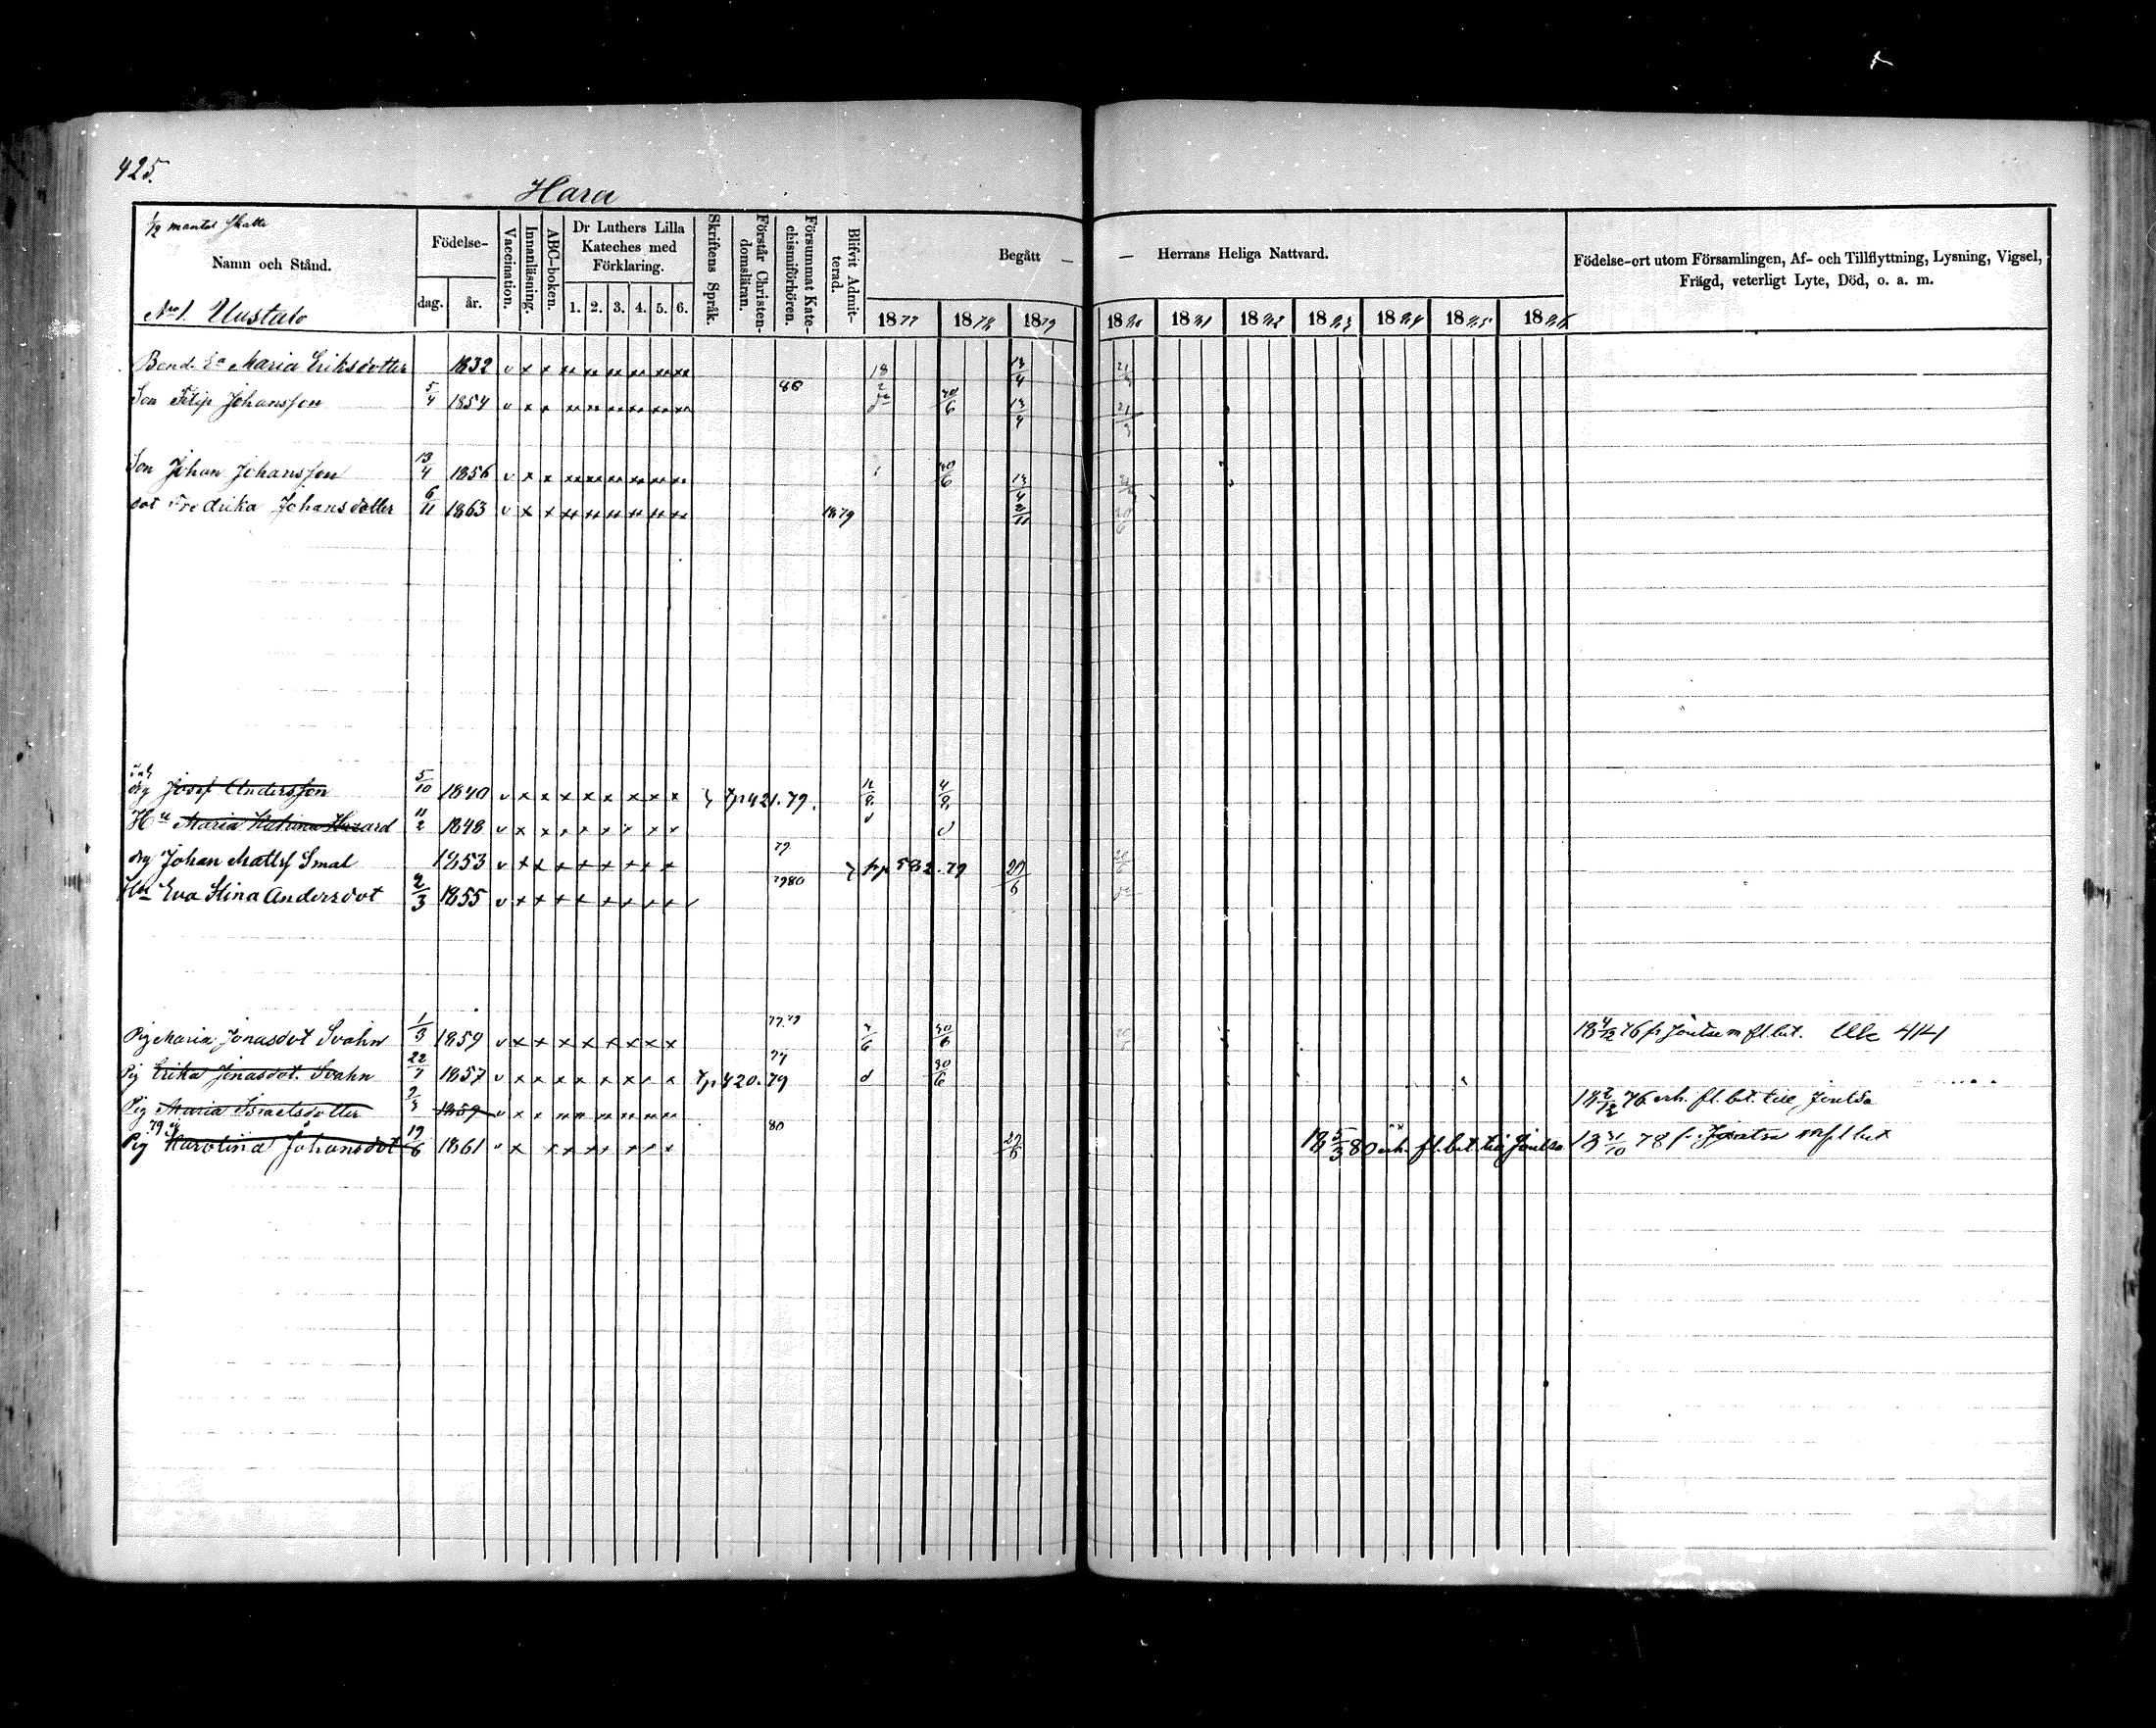 425.
Hara
1/2 mantal Skatte
Namn och Stånd.
No 1. Uustalo
Födelse-
dag. år.
Vaccination.
Innanläsning.
ABC-boken.
Dr Luthers Lilla
Kateches med
Förklaring.
1. 2. 3. 4. 5. 6.
Skriftens Språk.
Förstår Christen-
domsläran.
Försummat Kate-
chismiförhören.
Blifvit Admit-
terad.
Begått — — Herrans Heliga Nattvard.
1877 1878 1879 1880 1881 1882 1883 1884 1885 1886
Födelse-ort utom Församlingen, Af- och Tillflyttning, Lysning, Vigsel,
Frägd, veterligt Lyte, Död, o. a. m.
Bond. Ea Maria Eriksdotter 1832 v x x 13/4
Son Filip Johansson 5/4 1854 v x x 86 30/6 13/4 21/3
Son Johan Johansson 13/4 1856 v x x 30/6 13/4
dot Fredrika Johansdotter 6/11 1863 v x x 1879 2/11
Josef Andersson 5/10 1840 v x x x x x x x x } Tp 421. 79. 4/8
Hu Maria Katrina Hazard 11/2 1848 v x x x x x x x x
Johan Matts Smal 1853 v x x x x x x x x 79 } pp 582. 79 29/6
Hu Eva Stina Andersdot 2/3 1855 v x x x x x x x x 7980
Pig Maria Jonasdot Svahn 1/3 1859 v x x x x x x x x 77.79 30/6 18 4/12 76 fr Joutsa m fl. bet. Utk 414
Pig Erika Jonasdot. Svahn 22/1 1857 v x x x x x x x x Tp 420. 79 30/6
Pig Maria Israelsdotter 1859 v x x 18 2/12 76 erh. fl. bt. till Joutsa
Pig Karolina Johansdot 19/6 1861 v x x x x x x x 80 29/6 18 5/3 80 erh. fl. bet. till Joutsa 18 31/10 78 fr. Joutsa m fl bet